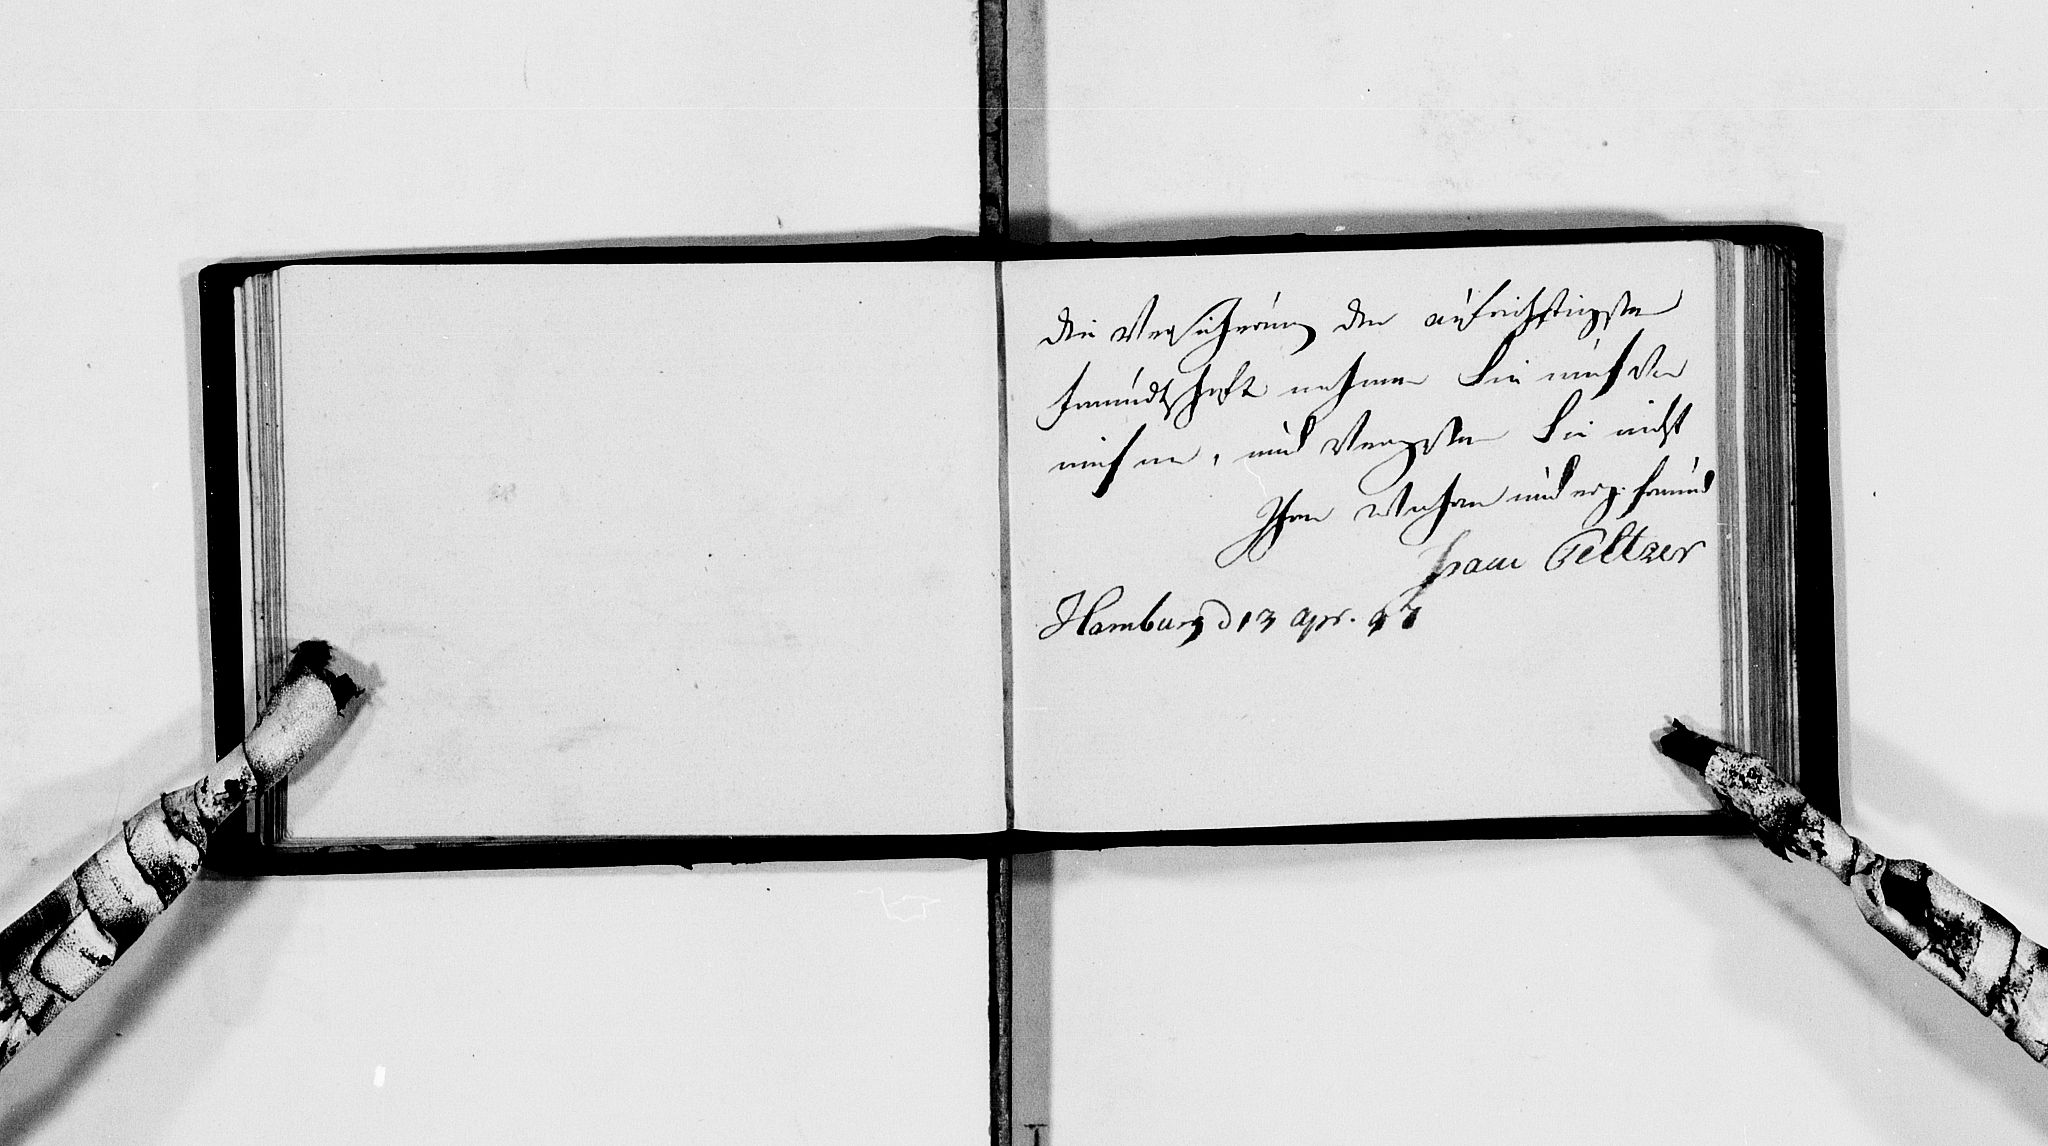 die Versicherung der aufrichtigsten
freundtschaft nehmen Sie
und Vergesen Sie nicht
Ihren Wahren und erg. freund
Isaac Peltzer
Hamburg d 13 apr. 97